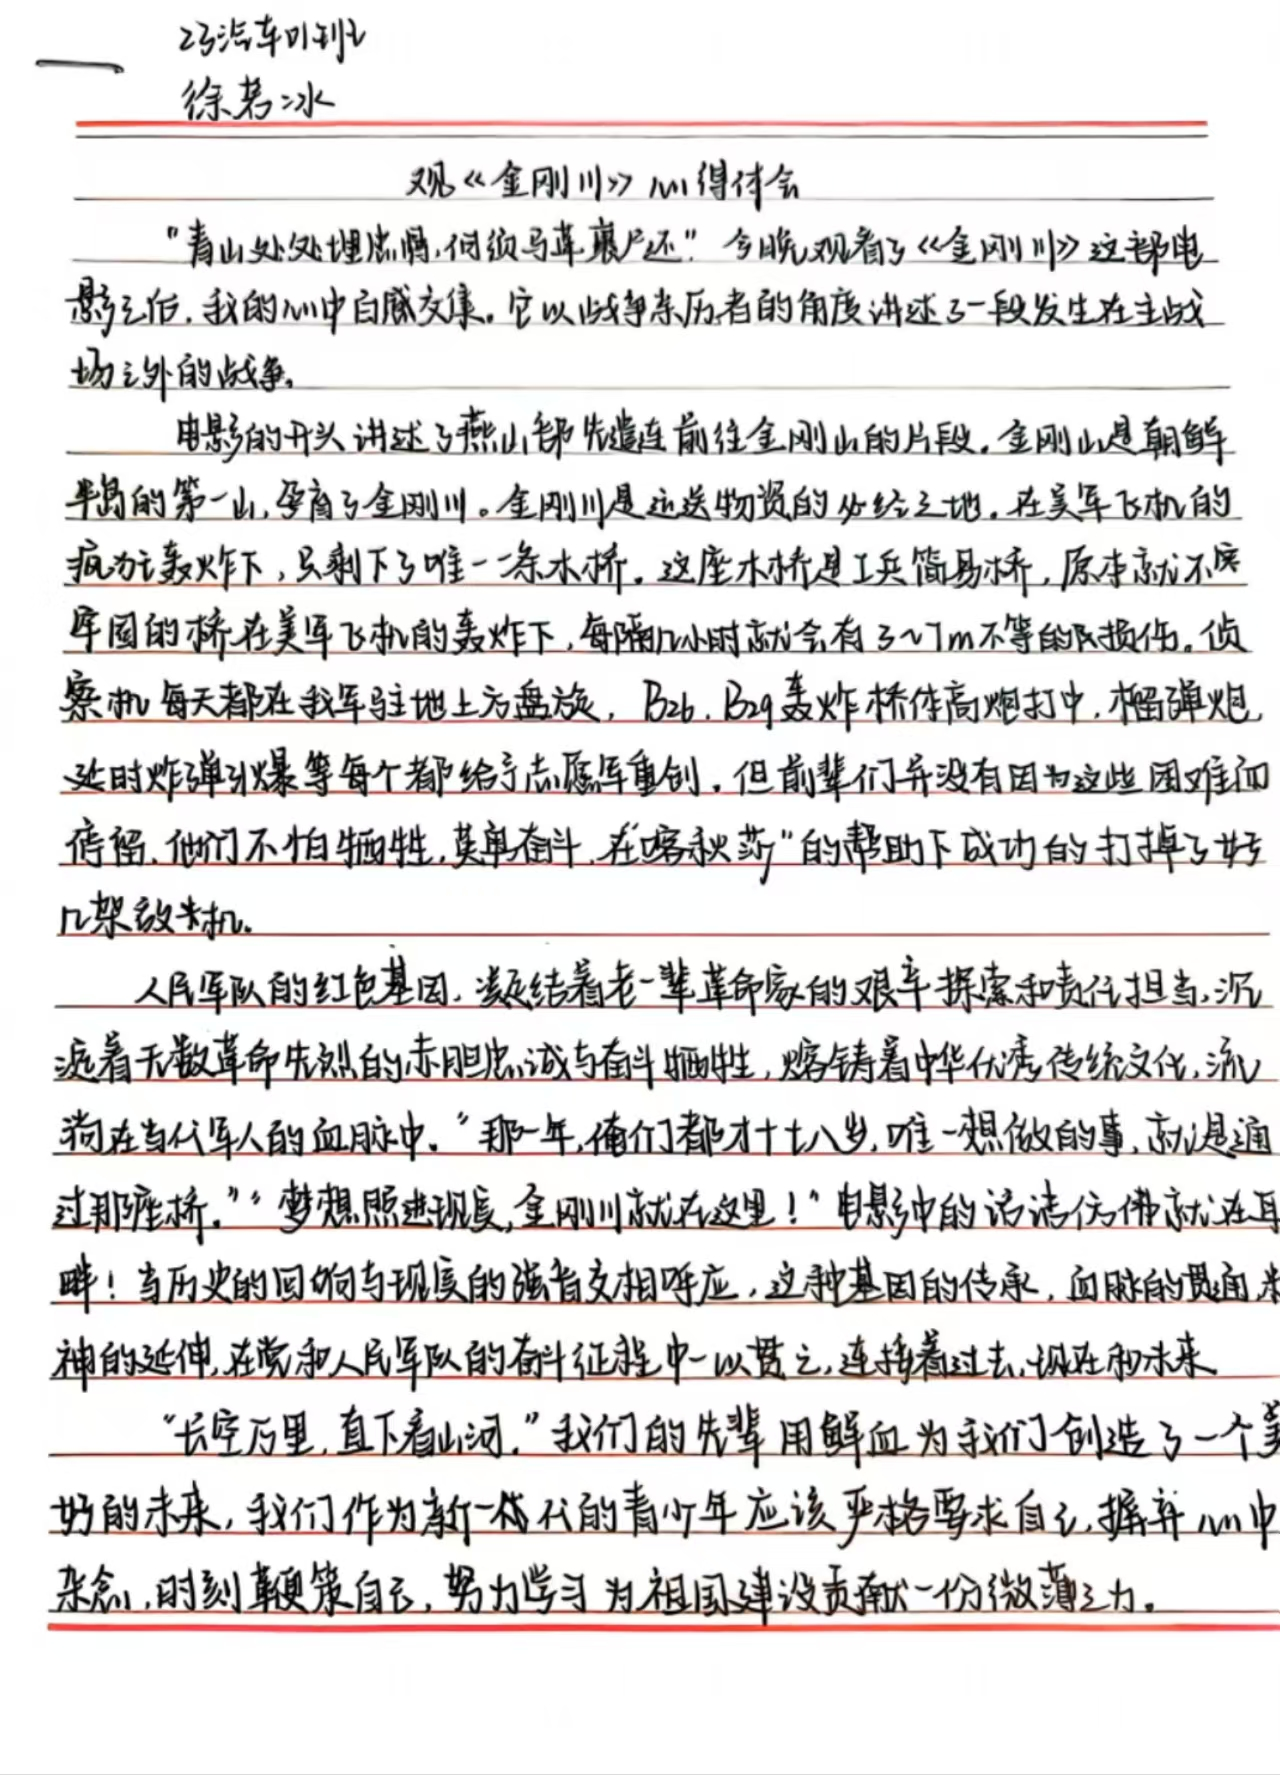 23汽车01班
徐若冰
观《金刚川》心得体会
"青山处处埋忠骨,何须马革裹尸还"今晚观看了《金刚川》这部电
影之后,我的心中百感交集。它以战争亲历者的角度讲述了一段发生在主战
场之外的战争。
电影的开头讲述了燕山部先遣连前往金刚山的片段。金刚山是朝鲜
半岛的第一山,孕育了金刚川。金刚川是运送物资的必经之地。在美军飞机的
疯狂轰炸下,只剩下了唯一一条木桥。这座木桥是工兵简易桥,原本就不牢
固的桥在美军飞机的轰炸下,每隔几小时就会有3~7m不等的损伤。侦
察机每天都在我军驻地上方盘旋,B26、B29轰炸桥体高炮打中,榴弹炮,
延时炸弹引爆等每个都给予志愿军重创。但前辈们并没有因为这些困难而
停留,他们不怕牺牲,英勇奋斗,在"喀秋莎"的帮助下成功的打掉了好
几架敌机。
人民军队的红色基因,凝结着老一辈革命家的艰辛探索和责任担当,沉
淀着无数革命先烈的赤胆忠诚与奋斗牺牲,熔铸着中华优秀传统文化,流
淌在当代军人的血脉中。"那一年,俺们都才十七八岁,唯一想做的事,就是通
过那座桥。""梦想照进现实,金刚川就在这里!"电影中的话语仿佛就在耳
畔!当历史的回响与现实的强音交相呼应,这种基因的传承,血脉的贯通,精
神的延伸,在党和人民军队的奋斗征程中一以贯之,连接着过去,现在和未来
"长空万里,直下看山河。"我们的先辈用鲜血为我们创造了一个美
好的未来,我们作为新一代的青少年应该严格要求自己,摒弃心中
杂念,时刻鞭策自己,努力学习为祖国建设贡献一份微薄之力。